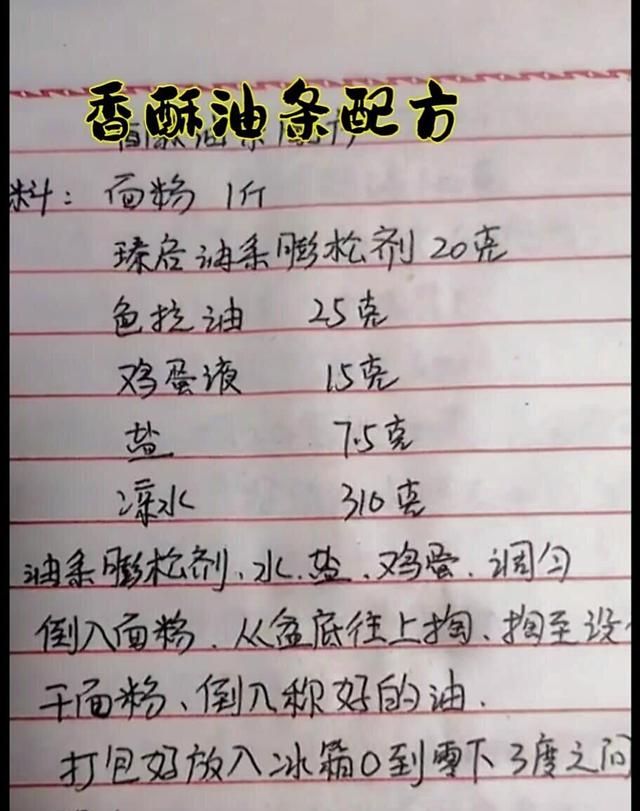 香酥油条配方
料: 面粉 1斤
臻启油条膨松剂 20克
色拉油 25克
鸡蛋液 15克
盐 7.5克
凉水 310克
油条膨松剂、水、盐、鸡蛋、调匀
倒入面粉、从盆底往上掏、掏至没
干面粉、倒入称好的油.
打包好放入冰箱0到零下3度之间